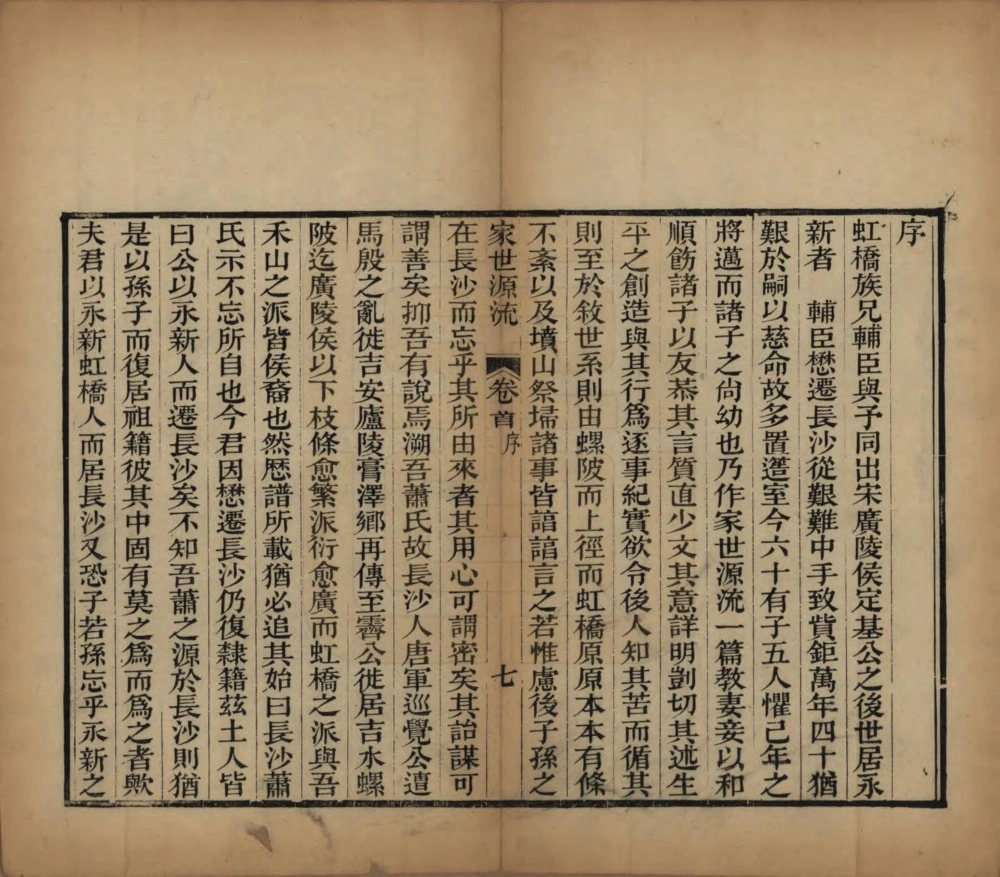 序
虹橋族兄輔臣與予同出宋廣陵侯定基公之後世居永
新者 輔臣懋遷長沙從艱難中手致貲鉅萬年四十猶
艱於嗣以慈命故多置簉至今六十有子五人懼己年之
將邁而諸子之尙幼也乃作家世源流一篇教妻妾以和
順飭諸子以友恭其言質直少文其意詳明剴切其述生
平之創造與其行爲逐事紀實欲令後人知其苦而循其
則至於敘世系則由螺陂而上徑而虹橋原原本本有條
不紊以及墳山祭埽諸事皆諳諳言之若惟慮後子孫之
家世源流 卷首 序 七
在長沙而忘乎其所由來者其用心可謂密矣其詒謀可
謂善矣抑吾有說焉溯吾蕭氏故長沙人唐軍巡覺公遭
馬殷之亂徙吉安廬陵膏澤鄉再傳至霽公徙居吉水螺
陂迄廣陵侯以下枝條愈繁派衍愈廣而虹橋之派與吾
禾山之派皆侯裔也然歷譜所載猶必追其始曰長沙蕭
氏示不忘所自也今君因懋遷長沙仍復隸籍茲土人皆
曰公以永新人而遷長沙矣不知吾蕭之源於長沙則猶
是以孫子而復居祖籍彼其中固有莫之爲而爲之者歟
夫君以永新虹橋人而居長沙又恐子若孫忘乎永新之